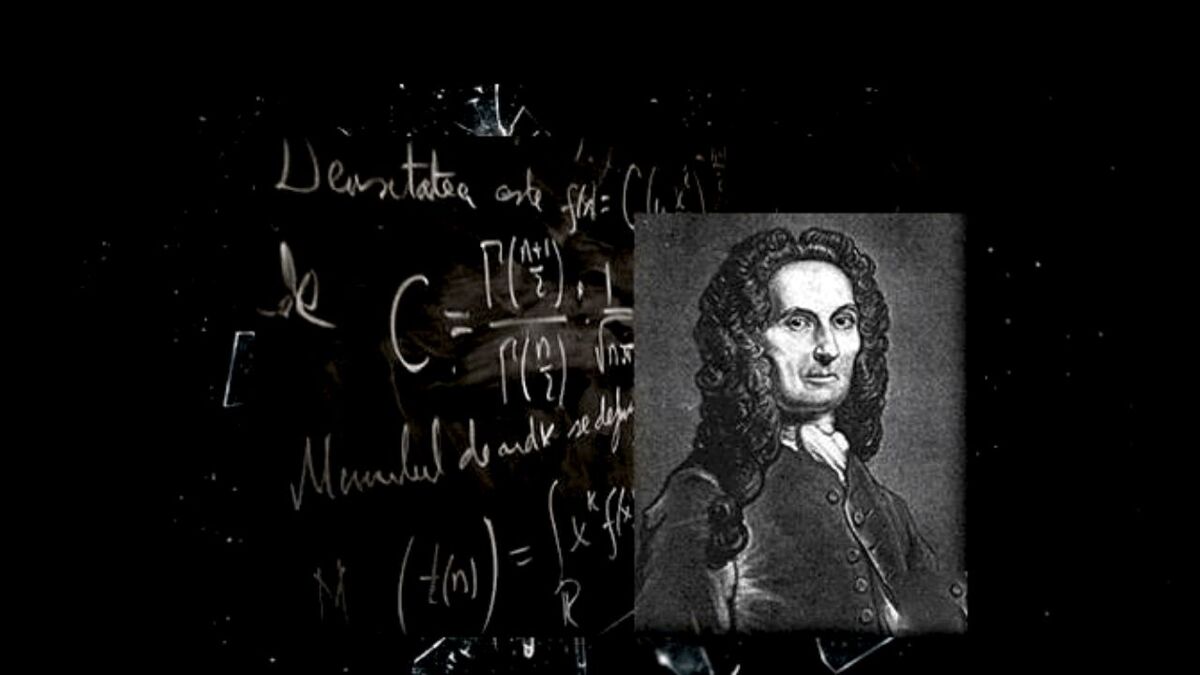 Densitatea este f(x) = C(
de C = Γ(n+1/2) / Γ(n/2) · 1 / √nπ
Momentul de ordk se defin
M (t(n)) = ∫ R x^k f(x